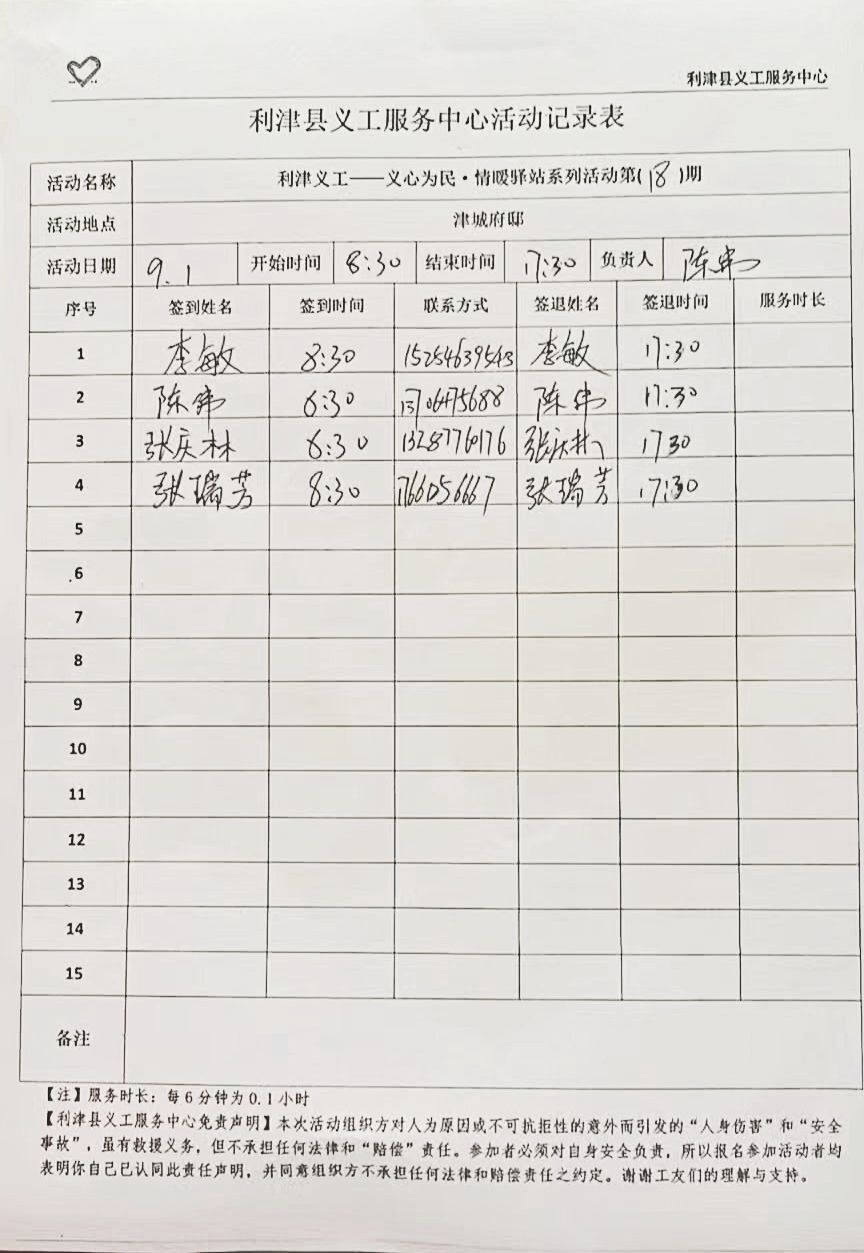 利津县义工服务中心
利津县义工服务中心活动记录表
活动名称 利津义工——义心为民·情暖驿站系列活动第(18)期
活动地点 津城府邸
活动日期 9.1 开始时间 8:30 结束时间 17:30 负责人 陈伟
序号 签到姓名 签到时间 联系方式 签退姓名 签退时间 服务时长
1 李敏 8:30 15254639543 李敏 17:30
2 陈伟 8:30 13706475688 陈伟 17:30
3 张庆林 8:30 13287760176 张庆林 1730
4 张瑞芳 8:30 张瑞芳 17:30
5
6
7
8
9
10
11
12
13
14
15
备注
【注】服务时长：每6分钟为0.1小时
【利津县义工服务中心免责声明】本次活动组织方对人为原因或不可抗拒性的意外而引发的“人身伤害”和“安全
事故”，虽有救援义务，但不承担任何法律和“赔偿”责任。参加者必须对自身安全负责，所以报名参加活动者均
表明你自己已认同此责任声明，并同意组织方不承担任何法律和赔偿责任之约定。谢谢工友们的理解与支持。